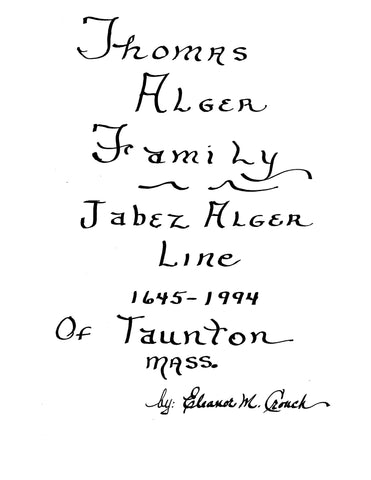 Thomas
Alger
Family
Jabez Alger
Line
1645-1994
Of Taunton
Mass.
by: Eleanor M. Crouch